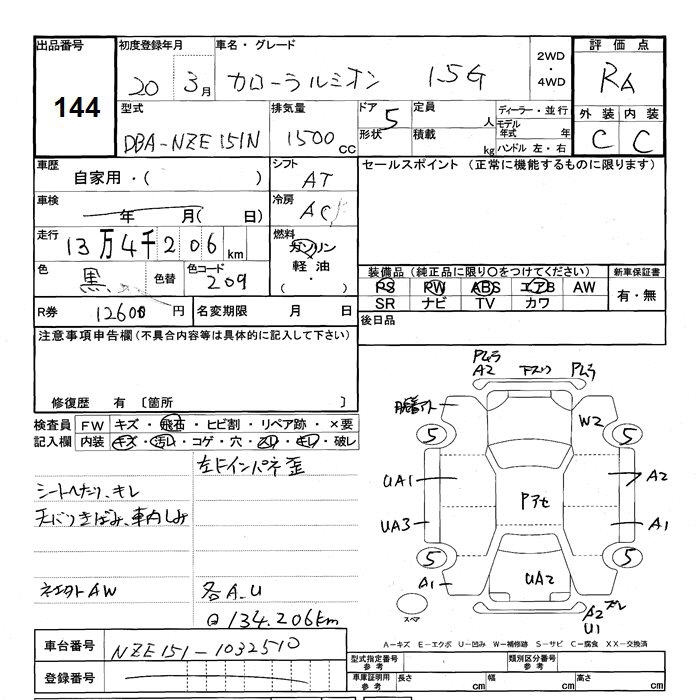 出品番号
144
初度登録年月
20 3月
車名・グレード
カローラルミオン 1.5G
2WD
・
4WD
評価点
RA
型式
DBA-NZE151N
排気量
1500 cc
ドア 5
形状
定員 人
積載 kg
ディーラー・並行
モデル年式 年
ハンドル 左・右
外装 内装
C C
車歴
自家用・( )
シフト
AT
セールスポイント (正常に機能するものに限ります)
車検
年 月( 日)
冷房
AC
走行
13万4千206km
燃料
ガソリン
軽油
( ・ )
色
黒
色替
色コード
209
装備品(純正品に限り○をつけてください)
新車保証書
PS PW ABS エアB AW
SR ナビ TV カワ
有・無
R券 12600円
名変期限 月 日
後日品
注意事項申告欄(不具合内容等は具体的に記入して下さい)
修復歴 有 〔箇所 〕
検査員記入欄
FW キズ・飛石・ヒビ割・リペア跡・×要
内装 キズ・汚れ・コゲ・穴・スリ・キレ・破レ
左Fインパネ歪
シートへたり、キレ
天バリきばみ、車内しみ
社外AW
各A.U
134.206km
Pムラ
A2
下スリ
Pムラ
W2
5
5
UA1
A2
Pアセ
UA3
A1
5
5
A1
UA2
A2
U1
スペア
A-キズ E-エクボ U-凹み W-補修跡 S-サビ C-腐食 XX-交換済
車台番号 NZE151-1032510
登録番号
型式指定番号
参考
類別区分番号
参考
車庫証明用
参考
長さ cm 幅 cm 高さ cm